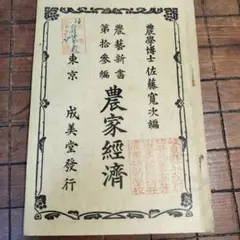 農學博士 佐藤寬次編
農藝新書
第拾參編
農家經濟
東京 成美堂發行